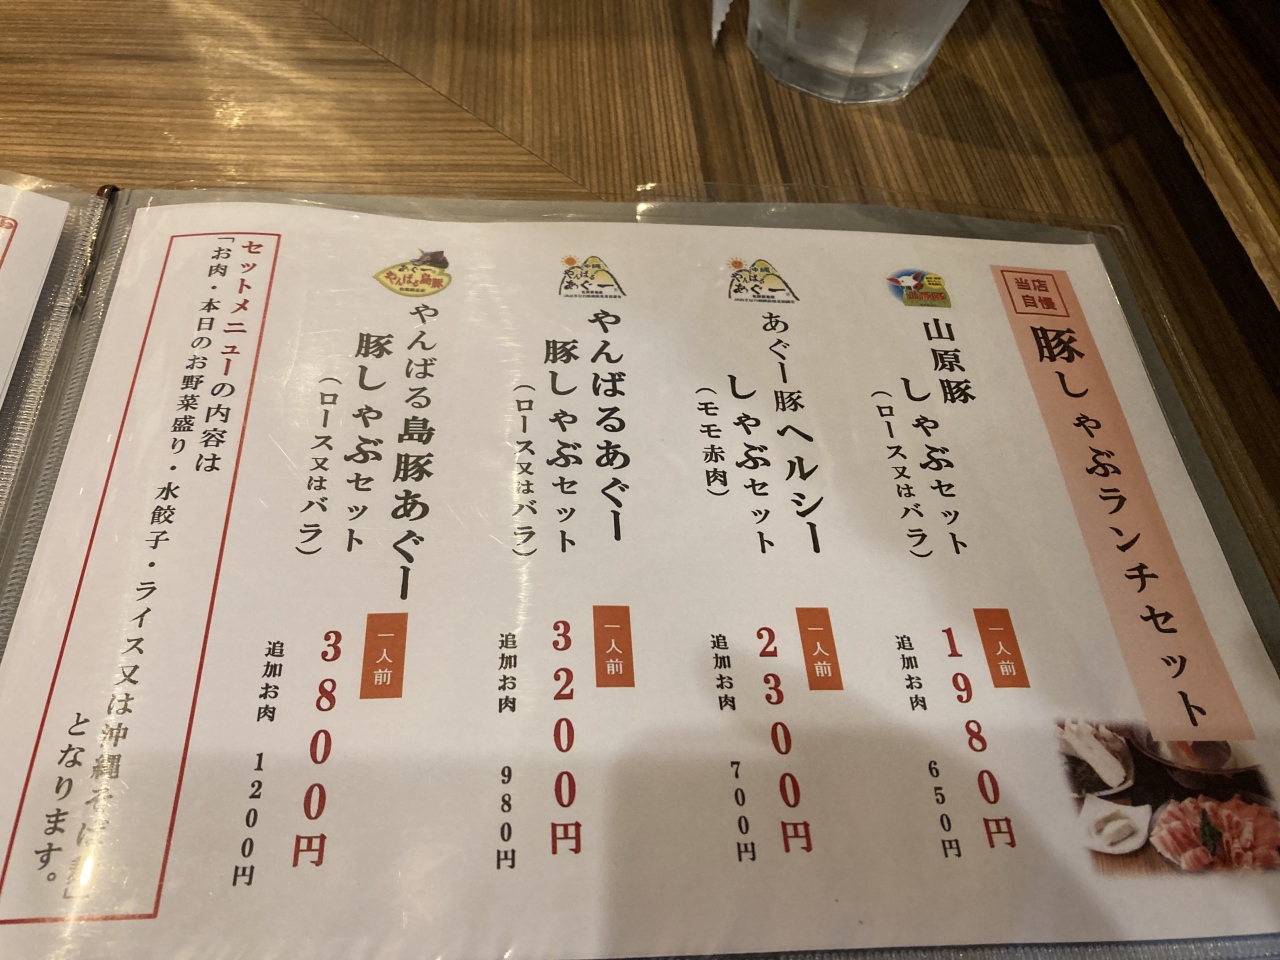 当店
自慢
豚しゃぶランチセット
山原豚
しゃぶセット
(ロース又はバラ)
一人前
1980円
追加お肉 650円
沖縄
やんばる
あぐー
あぐー豚ヘルシー
しゃぶセット
(モモ赤肉)
一人前
2300円
追加お肉 700円
沖縄
やんばる
あぐー
やんばるあぐー
豚しゃぶセット
(ロース又はバラ)
一人前
3200円
追加お肉 980円
あぐー
やんばる島豚
やんばる島豚あぐー
豚しゃぶセット
(ロース又はバラ)
一人前
3800円
追加お肉 1200円
セットメニューの内容は
「お肉・本日のお野菜盛り・水餃子・ライス又は沖縄そば麺」
となります。